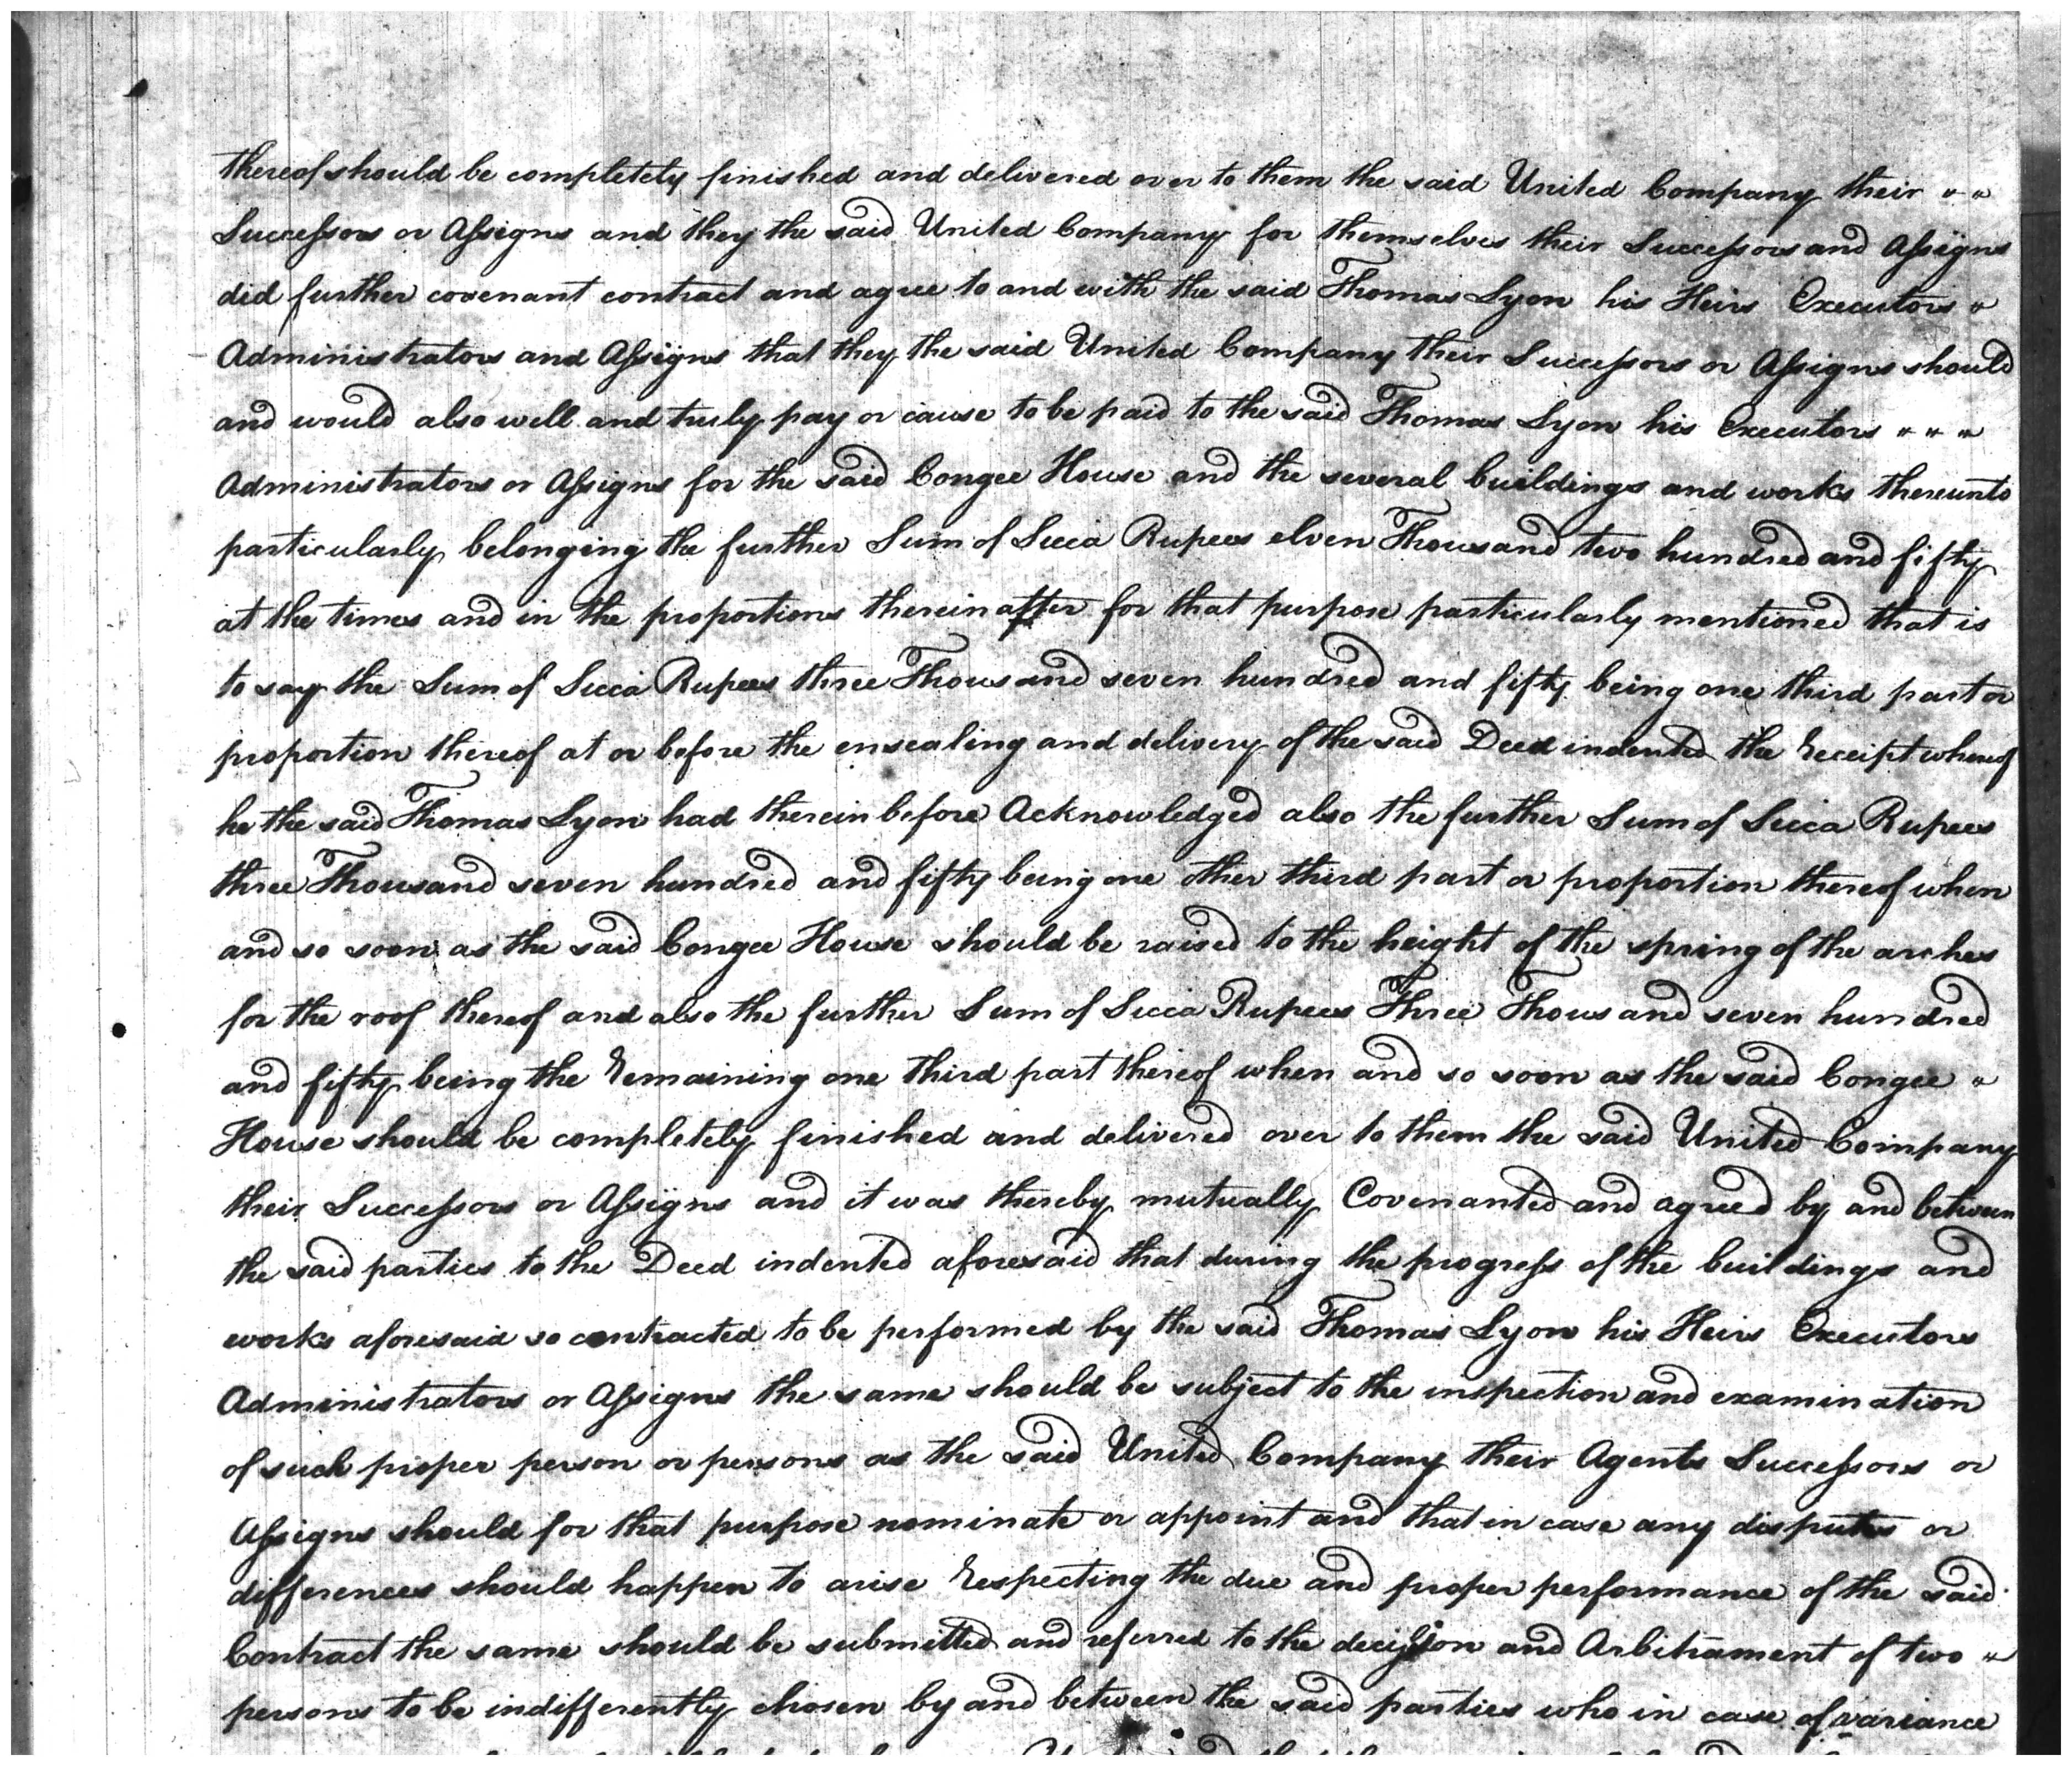 thereof should be completely finished and delivered over to them the said United Company their " "
Successors or Assigns and they the said United Company for themselves their Successors and Assigns
did further covenant contract and agree to and with the said Thomas Lyon his Heirs Executors "
Administrators and Assigns that they the said United Company their Successors or Assigns should
and would also well and truly pay or cause to be paid to the said Thomas Lyon his Executors " " "
Administrators or Assigns for the said Congee House and the several buildings and works thereunto
particularly belonging the further Sum of Sicca Rupees elven Thousand two hundred and fifty
at the times and in the proportions thereinafter for that purpose particularly mentioned that is
to say the Sum of Sicca Rupees three Thousand seven hundred and fifty being one third part or
proportion thereof at or before the ensealing and delivery of the said Deed indented the Receipt whereof
he the said Thomas Lyon had therein before Acknowledged also the further Sum of Sicca Rupees
three Thousand seven hundred and fifty being one other third part or proportion thereof when
and so soon as the said Congee House should be raised to the height of the spring of the arches
for the roof thereof and also the further Sum of Sicca Rupees Three Thousand seven hundred
and fifty being the Remaining one third part thereof when and so soon as the said Congee "
House should be completely finished and delivered over to them the said United Company
their Successors or Assigns and it was thereby mutually Covenanted and agreed by and between
the said parties to the Deed indented aforesaid that during the progress of the buildings and
works aforesaid so contracted to be performed by the said Thomas Lyon his Heirs Executors
Administrators or Assigns the same should be subject to the inspection and examination
of such proper person or persons as the said United Company their Agents Successors or
Assigns should for that purpose nominate or appoint and that in case any disputes or
differences should happen to arise Respecting the due and proper performance of the said
Contract the same should be submitted and referred to the decission and Arbitrament of two "
persons to be indifferently chosen by and between the said parties who in case of variance